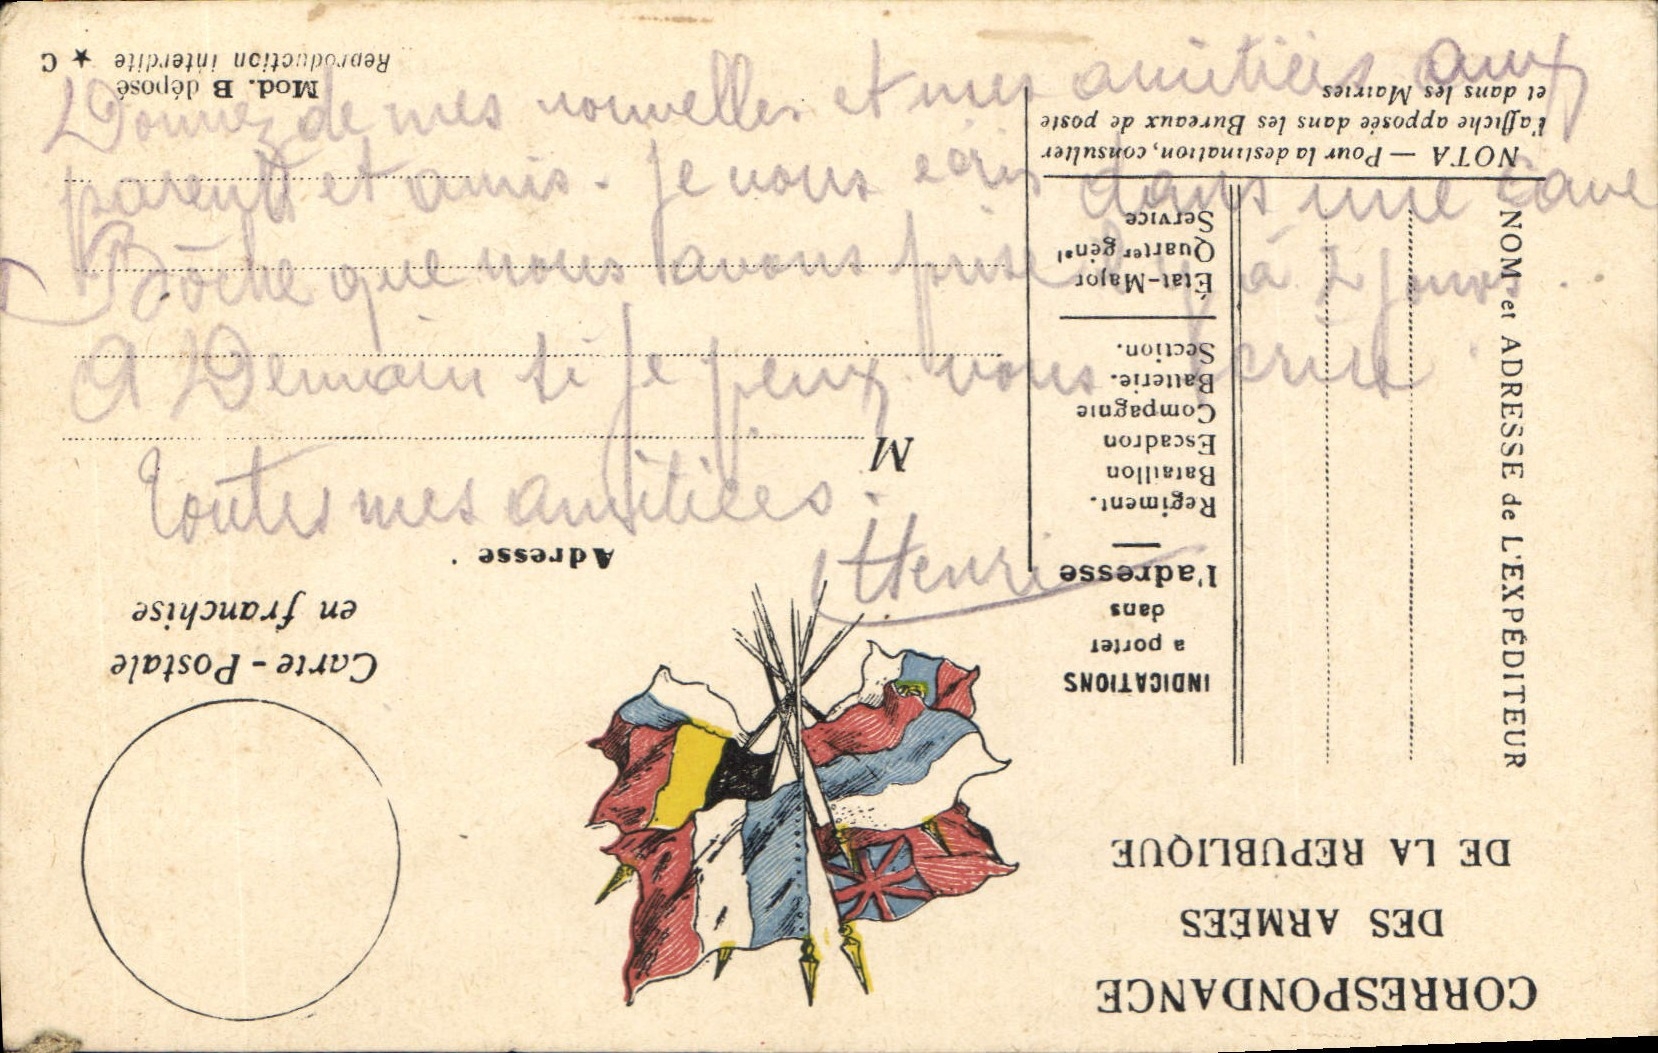 Donnez de mes nouvelles et mes amitiées aux
parents et amis. Je vous écris dans une cave
Bôche que nous avons prise il y à 2 jours.
A Demain si je peux vous écrire.
Toutes mes amitiées.
Henri
CORRESPONDANCE
DES ARMÉES
DE LA RÉPUBLIQUE
Carte-Postale
en franchise
NOM et ADRESSE de L'EXPÉDITEUR
INDICATIONS
à porter
dans
l'adresse
Régiment.
Bataillon
Escadron
Compagnie
Batterie.
Section.
État-Major
Quartier génal
Service
NOTA — Pour la destination, consulter
l'affiche apposée dans les Bureaux de poste
et dans les Mairies
Adresse
M
Mod. B déposé
Reproduction interdite ★ C